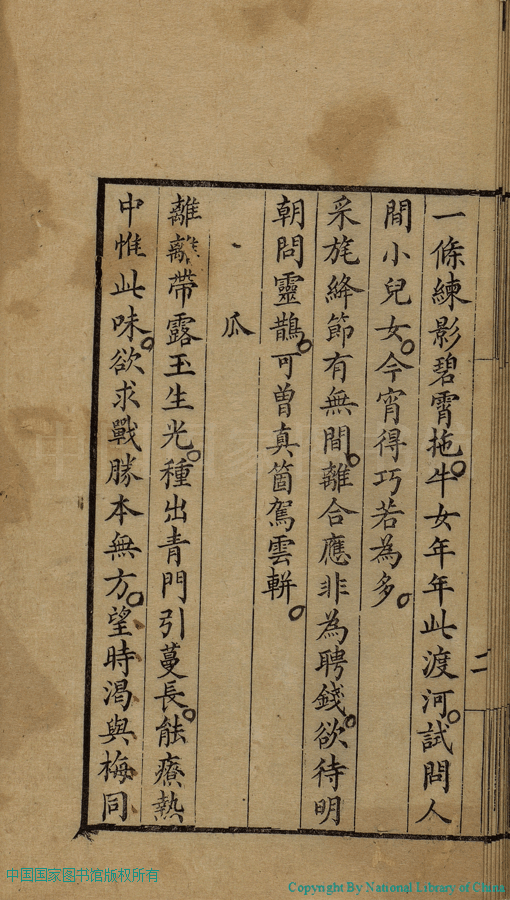 一條練影碧霄拖。牛女年年此渡河。試問人
間小兒女。今宵得巧若為多。
采旄絳節有無間。離合應非為聘錢。欲待明
朝問靈鵲。可曾真箇駕雲軿。
瓜
離離帶露玉生光。種出青門引蔓長。能療熱
中惟此味。欲求戰勝本無方。望時渴與梅同
二
中国国家图书馆版权所有
Copyright By National Library of China